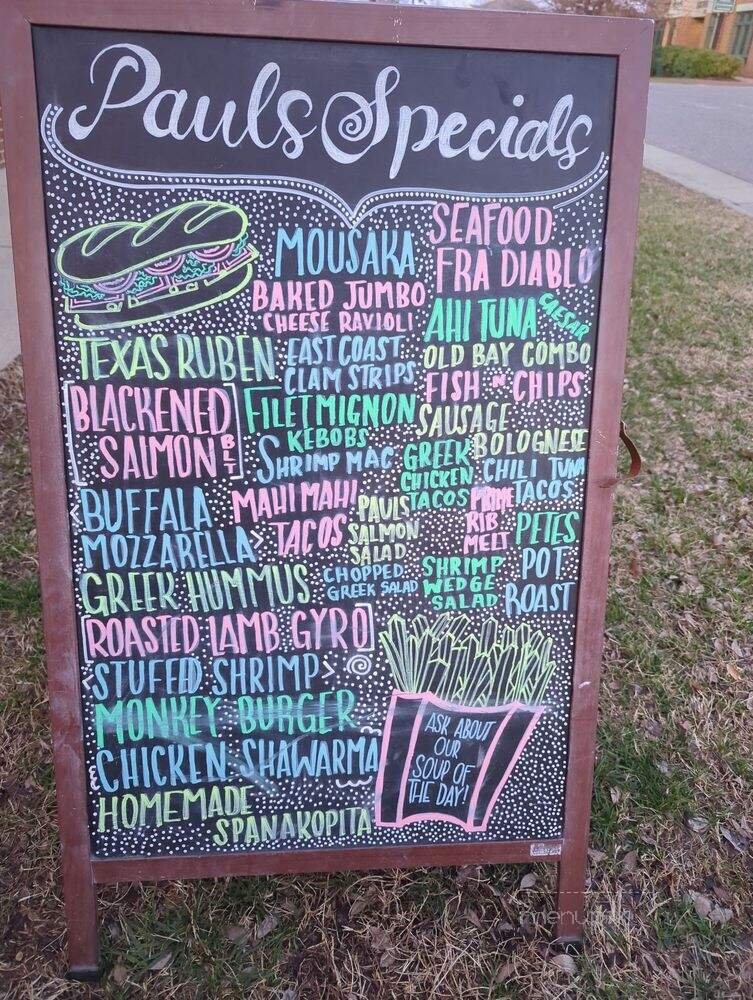 Pauls Specials
MOUSAKA
SEAFOOD
FRA DIABLO
BAKED JUMBO
CHEESE RAVIOLI
AHI TUNA CAESAR
TEXAS RUBEN
EAST COAST
CLAM STRIPS
OLD BAY COMBO
FISH N CHIPS
BLACKENED
SALMON BLT
FILET MIGNON
KEBOBS
SAUSAGE
BOLOGNESE
SHRIMP MAC
GREEK
CHICKEN
TACOS
CHILI TUNA
TACOS
BUFFALA
MOZZARELLA
MAHI MAHI
TACOS
PAULS
SALMON
SALAD
PRIME
RIB
MELT
PETES
POT
ROAST
GREEK HUMMUS
CHOPPED
GREEK SALAD
SHRIMP
WEDGE
SALAD
ROASTED LAMB GYRO
STUFFED SHRIMP
MONKEY BURGER
CHICKEN SHAWARMA
HOMEMADE
SPANAKOPITA
ASK ABOUT
OUR
SOUP OF
THE DAY!